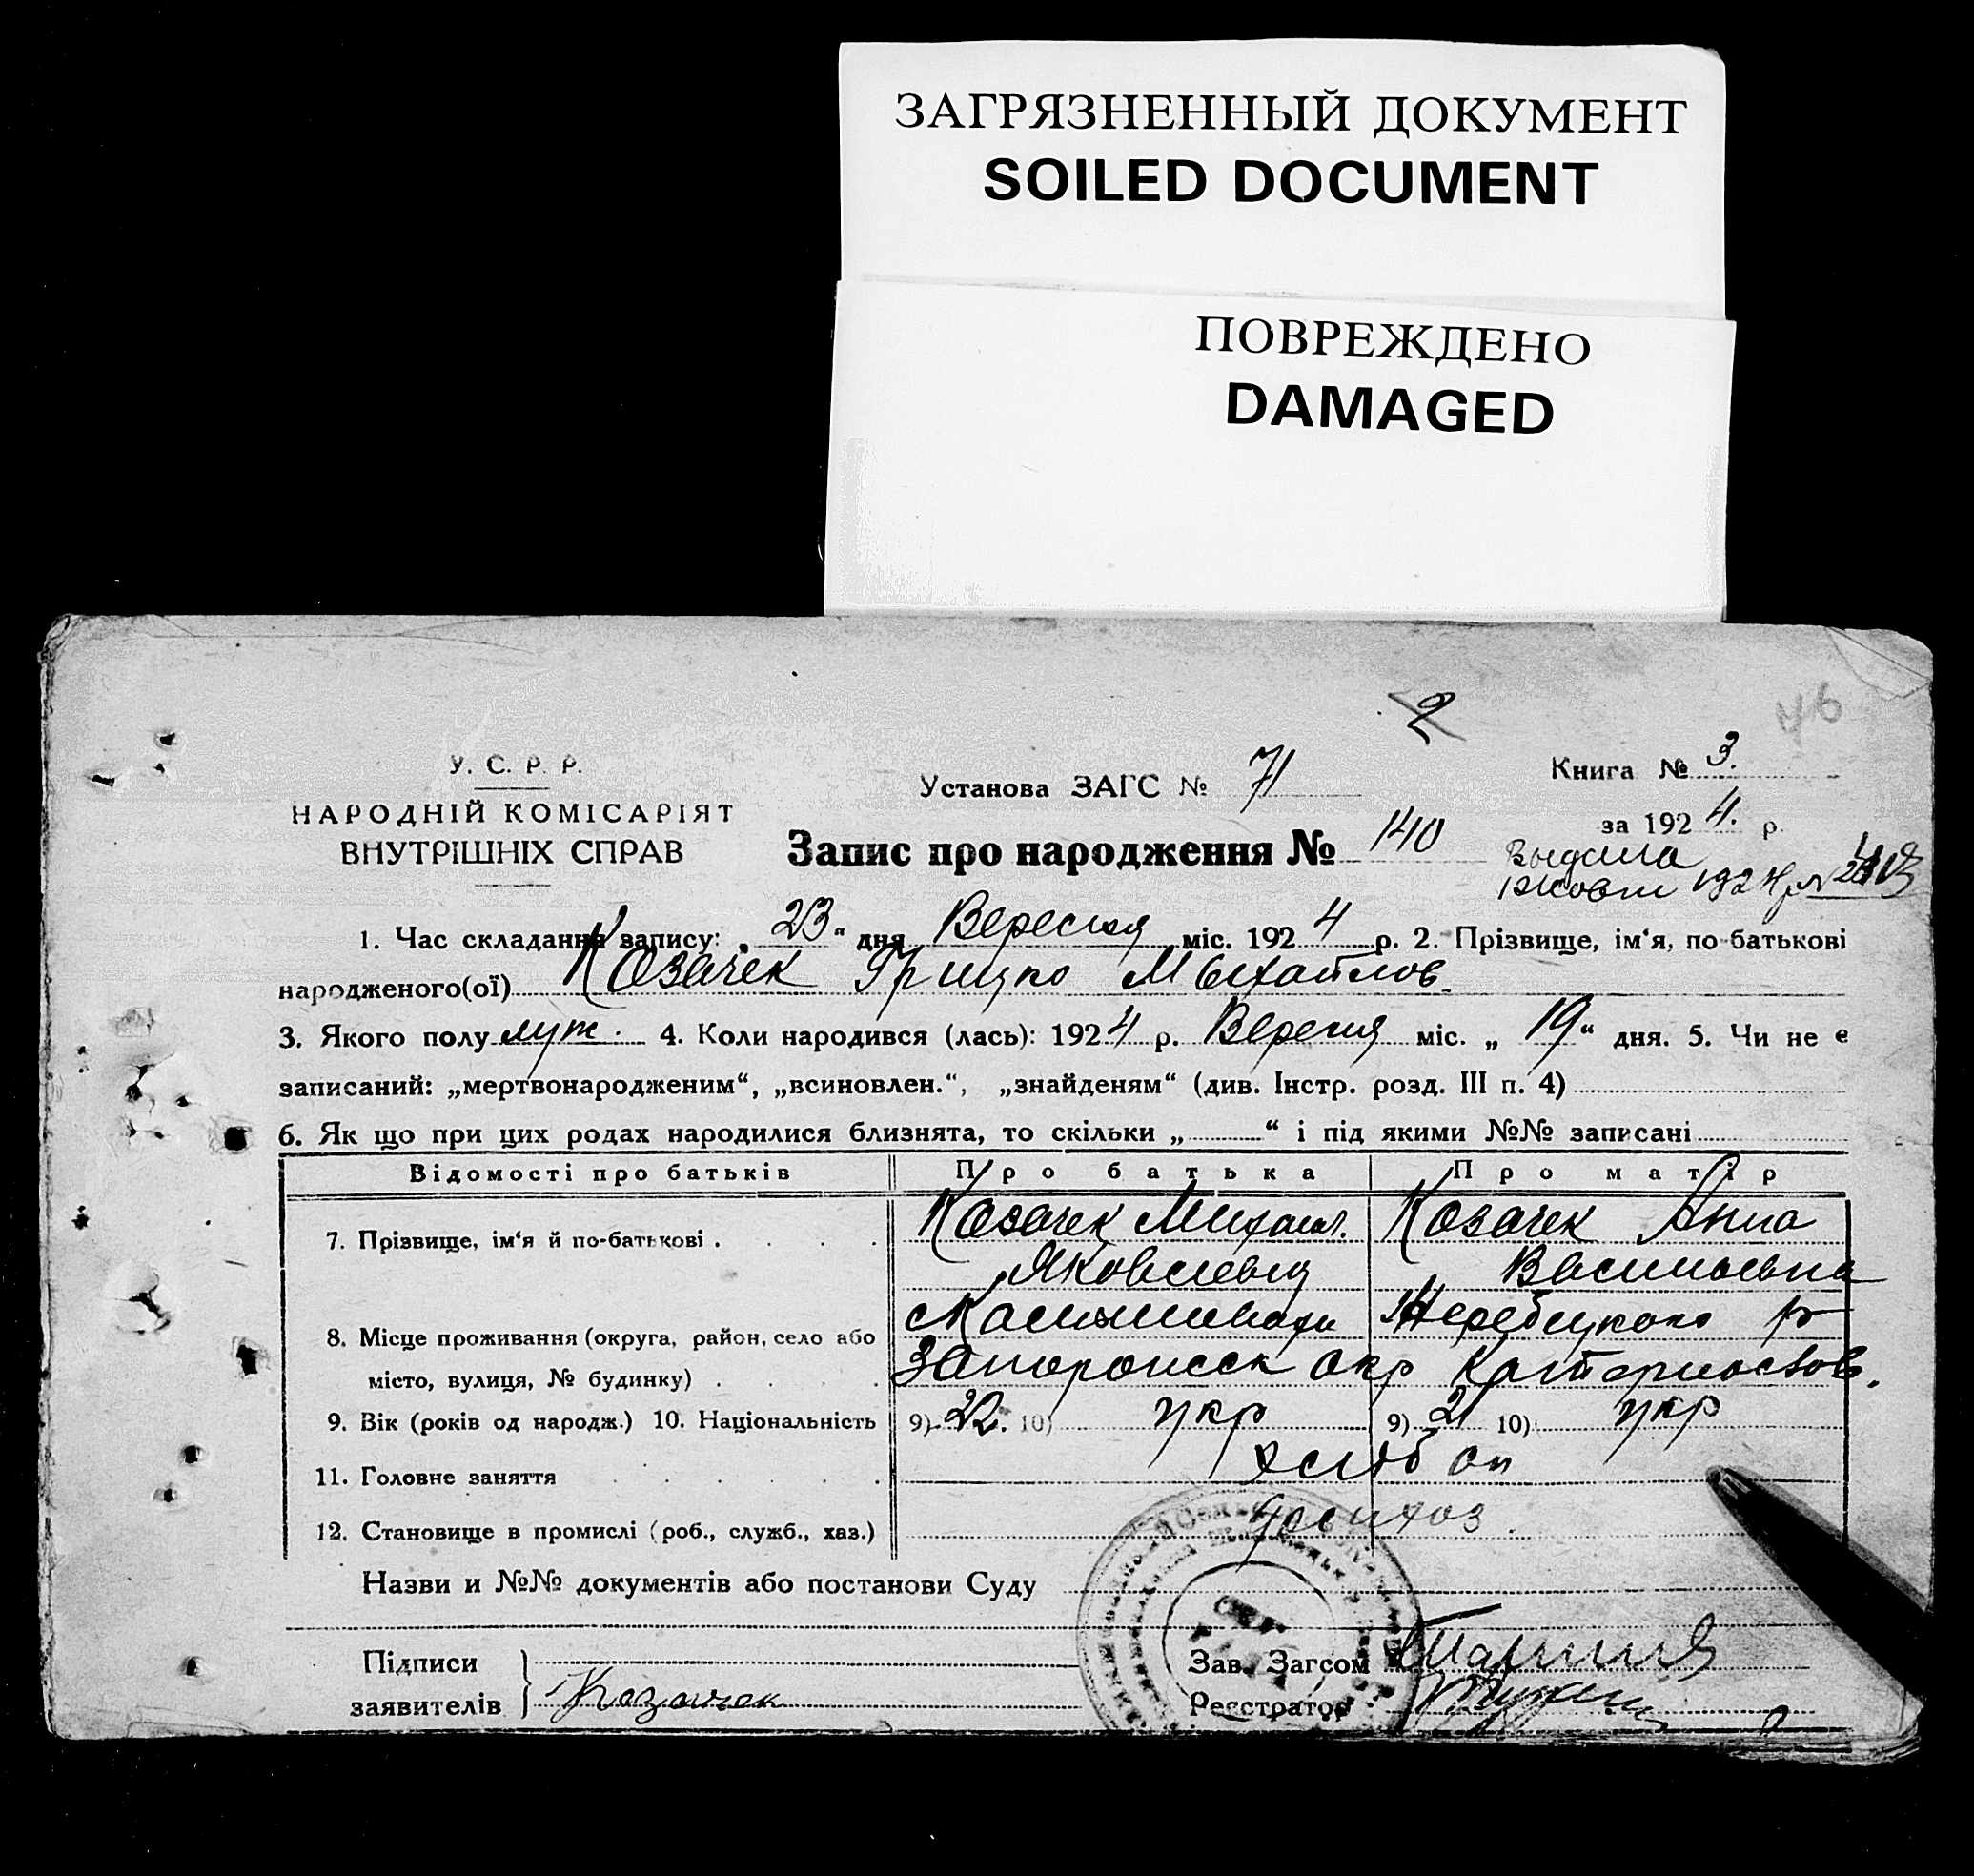 ЗАГРЯЗНЕННЫЙ ДОКУМЕНТ
SOILED DOCUMENT
ПОВРЕЖДЕНО
DAMAGED
2
46
У. С. Р. Р.
НАРОДНІЙ КОМІСАРІЯТ
ВНУТРІШНІХ СПРАВ
Установа ЗАГС № 71
Книга № 3.
за 1924. р.
Запис про народження № 140
1924
1. Час складання запису: „23“ дня Вересня міс. 1924 р. 2. Прізвище, ім‘я, по-батькові
народженого(ої) Козачек Грицко Михайлов
3. Якого полу муж. 4. Коли народився (лась): 1924 р. Вересня міс. „19“ дня. 5. Чи не є
записаний: „мертвонародженим“, „всиновлен.“, „знайденям“ (див. Інстр. розд. III п. 4)
6. Як що при цих родах народилися близнята, то скільки „ “ і під якими №№ записані
Відомості про батьків Про батька Про матір
7. Прізвище, ім‘я й по-батькові . Козачек Михаил. Козачек Анна
Яковлевич Васильевна
8. Місце проживання (округа, район, село або
місто, вулиця, № будинку) . Запорожск окр Катеринослав.
9. Вік (років од народж.) 10. Національність 9) 22. 10) укр 9) 21 10) укр
11. Головне заняття
12. Становище в промислі (роб., служб., хаз.)
Назви и №№ документів або постанови Суду
Підписи
заявителів Козачек
Зав. Загсом
Реєстратор